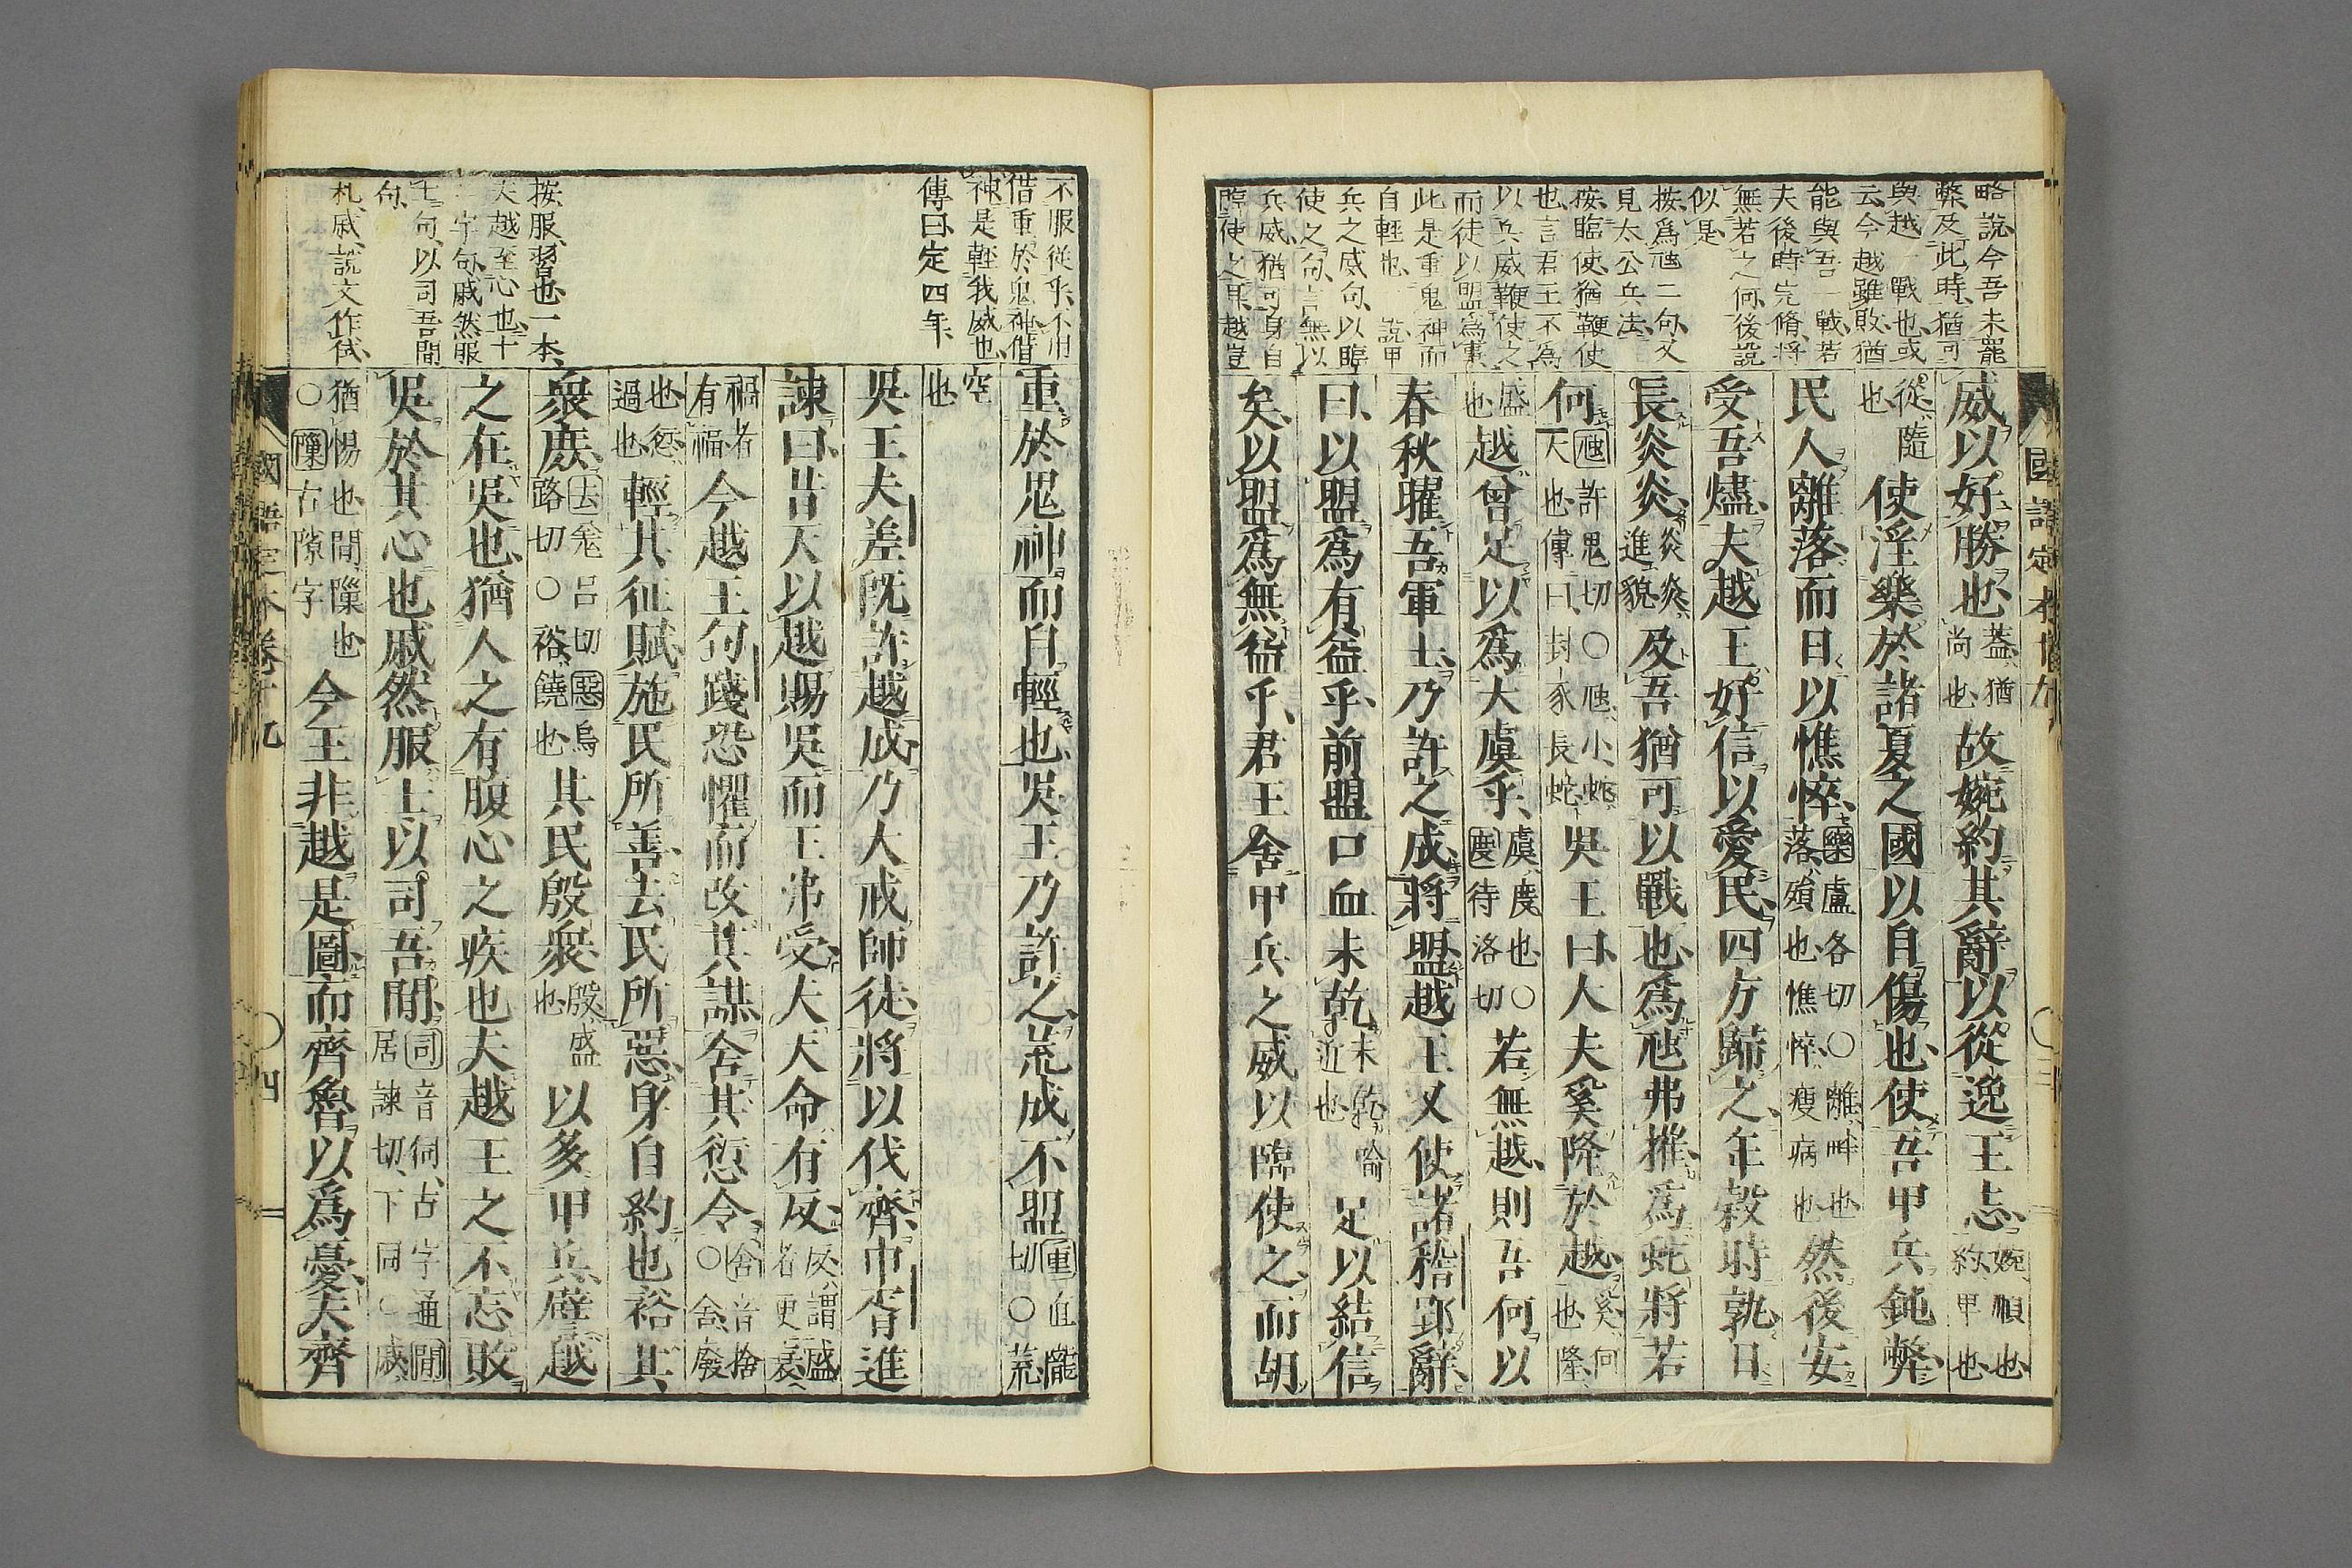 略說今吾未罷
弊及此時猶可
與越一戰也或
云今越雖敗猶
能與吾一戰若
夫後時完脩將
無若之何後說
似是
按為虺二句又
見太公兵法
按臨使猶鞭使
也言君王不為
以兵威鞭使之
而徒以盟為事
此是重鬼神而
自輕也說甲
兵之威句以臨
使之句言無以
兵威猶可身自
臨使之耳越豈
威以好勝也蓋猶尚也故婉約其辭以從逸王志婉順也約甲也
從隨也使淫樂於諸夏之國以自傷也使吾甲兵鈍弊
民人離落而日以憔悴樂盧各切○離畔也落殞也憔悴瘦病也然後安
受吾燼夫越王好信以愛民四方歸之年穀時孰日
長炎炎炎炎進貌及吾猶可以戰也爲虺弗摧爲蛇將若
何虺許鬼切○虺小蛇大也傳曰封豕長蛇吳王曰大夫奚隆於越奚何也隆
盛也越曾足以爲大虞乎虞度也○度待洛切若無越則吾何以
春秋曜吾軍士乃許之成將盟越王又使諸稽郢辭
曰以盟爲有益乎前盟口血未乾未乾喻近也足以結信
矣以盟爲無益乎君王舍甲兵之威以臨使之而胡
國語定本卷十九
○三
不服從乎不用
借重於鬼神借
神是輕我威也
傳曰定四年
按服習也一本
夫越至心也十
二字句戚然服
士句以司吾間
句
札戚說文作慽
重於鬼神而自輕也吳王乃許之荒成不盟重直隴切○荒
空也
吳王夫差既許越成乃大戒師徒將以伐齊申胥進
諫曰昔天以越賜吳而王弗受夫天命有反反謂盛者更衰
禍者有福今越王句踐恐懼而改其謀舍其愆令舍音捨○舍廢
也愆過也輕其征賦施民所善去民所惡身自約也裕其
衆庶去羌呂切惡烏路切○裕饒也其民殷衆殷盛也以多甲兵譬越
之在吳也猶人之有腹心之疾也夫越王之不忘敗
吳於其心也戚然服士以司吾間司音伺古字通間居諫切下同○戚
猶惕也間隟也○隟古隙字今王非越是圖而齊魯以爲憂夫齊
國語定本卷十九
○四